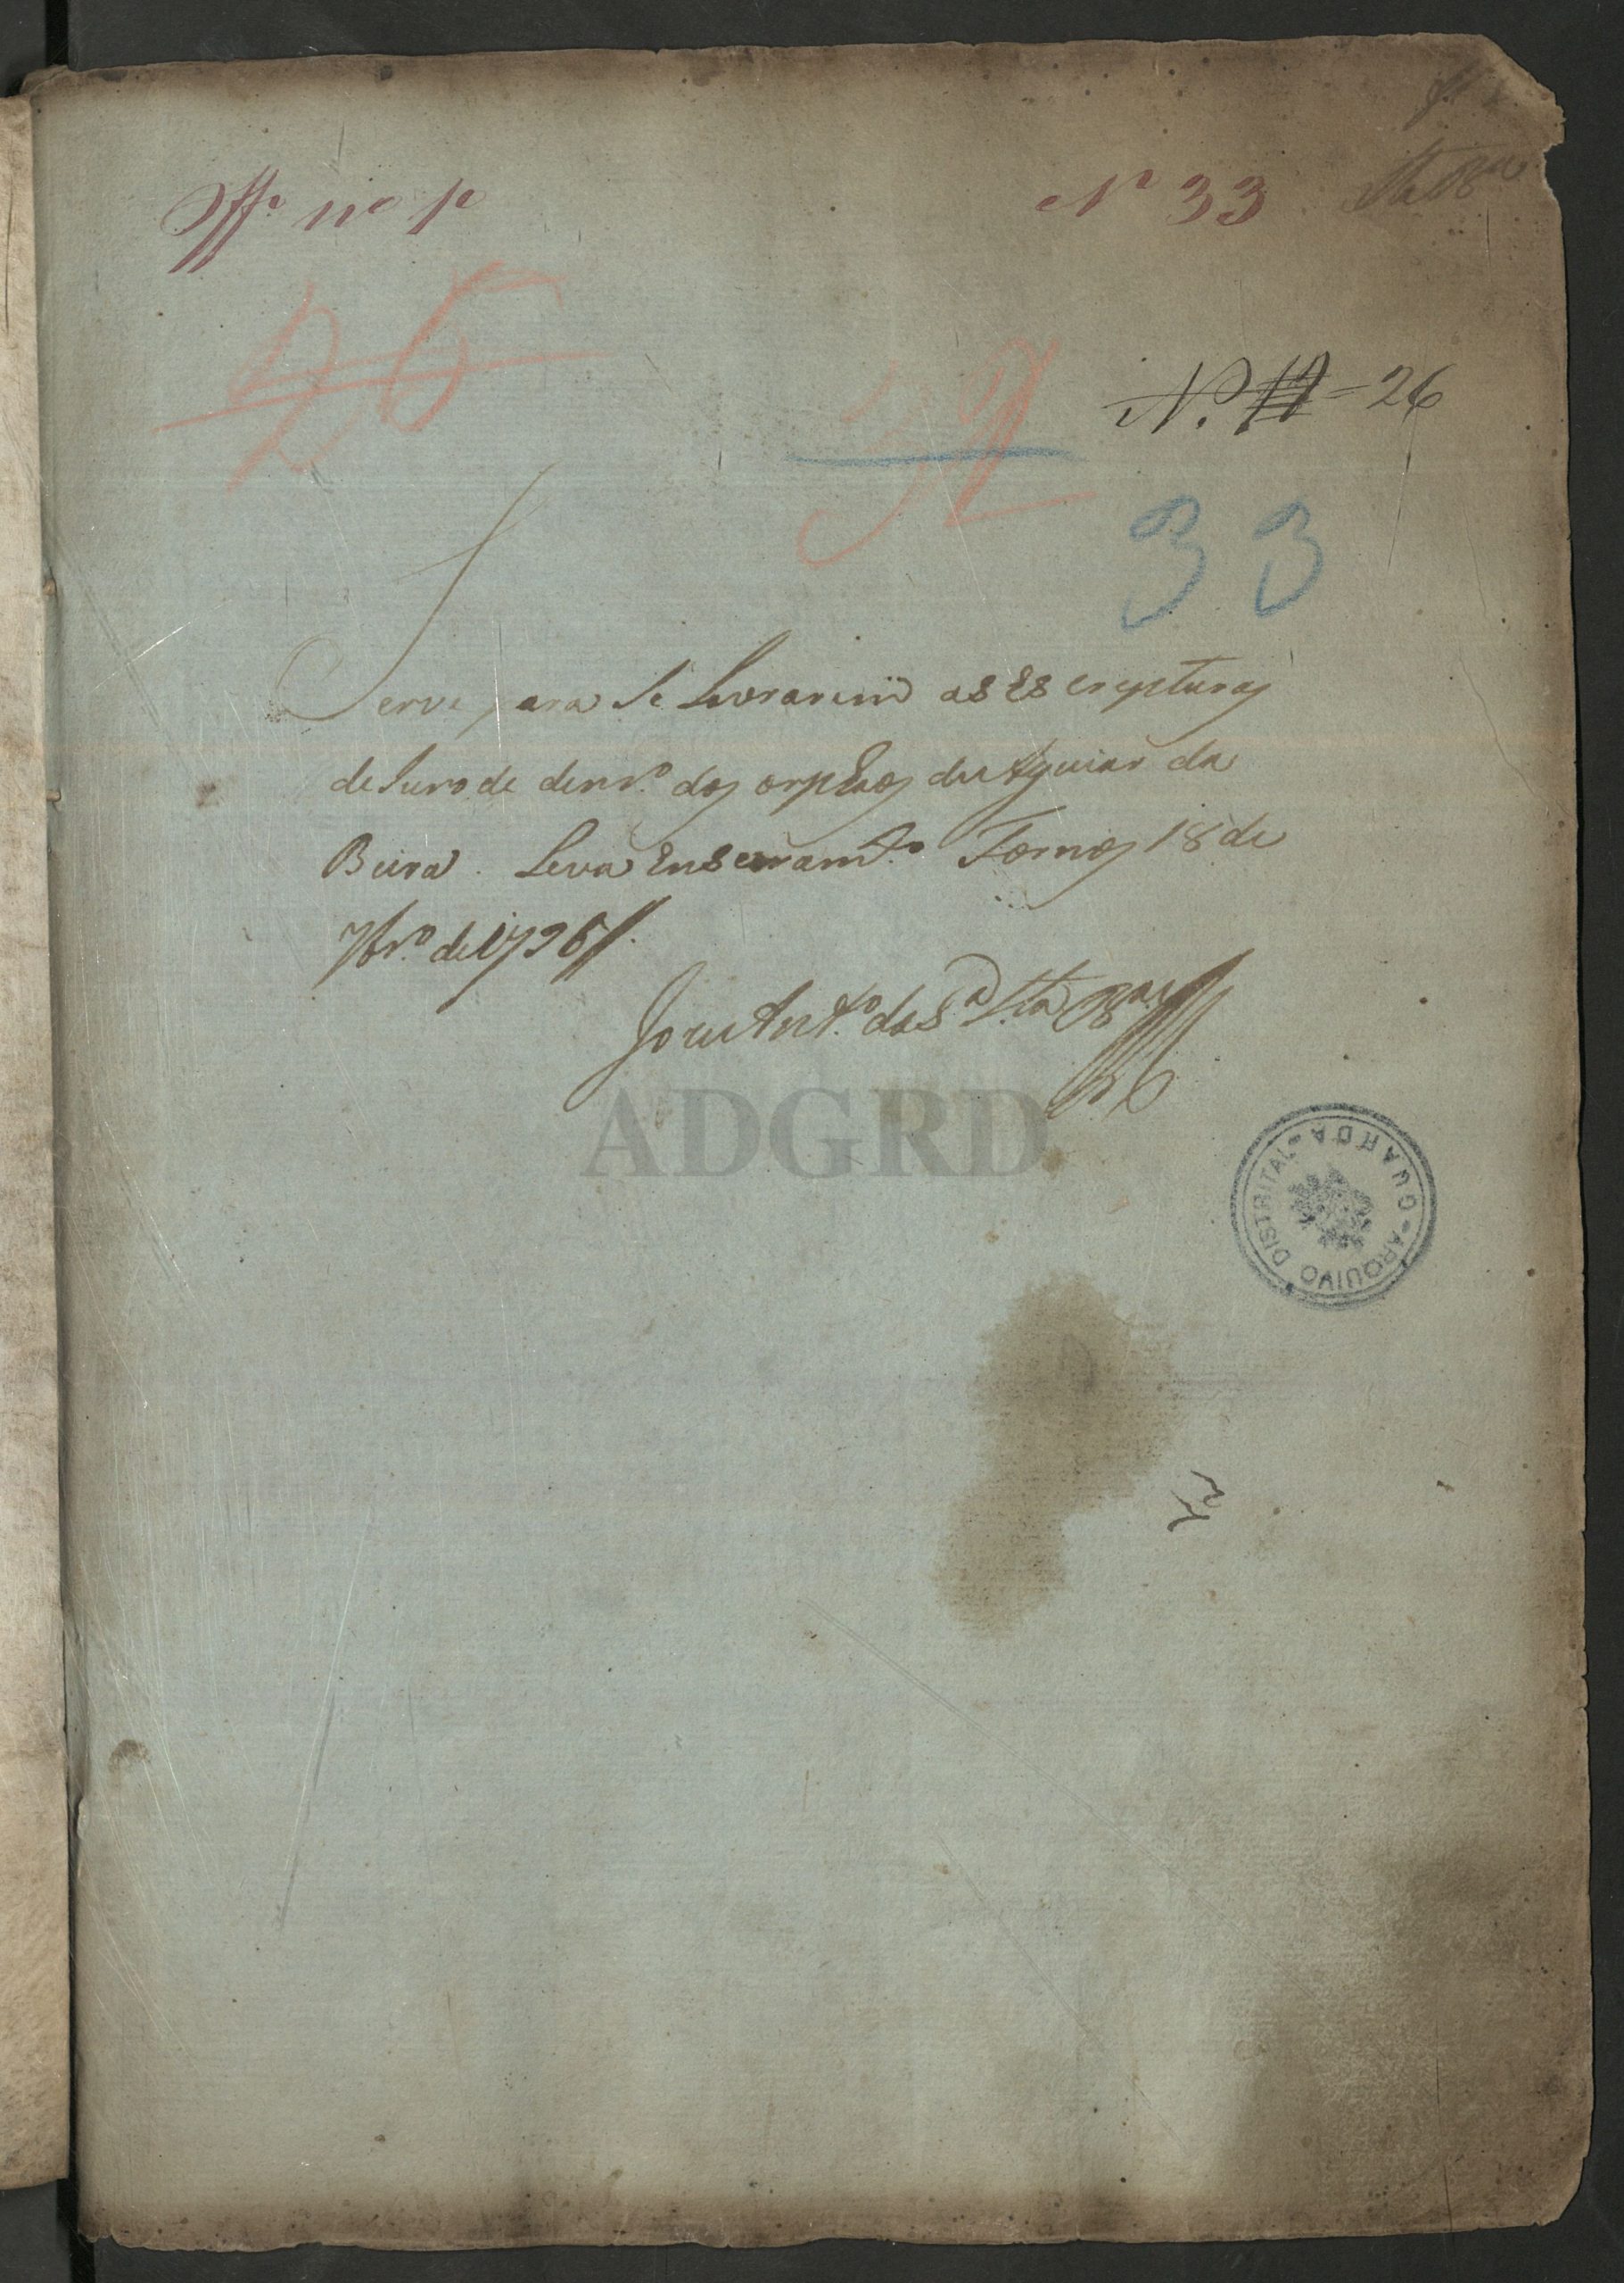 Nº 33
Sta Bar
N. 11 = 26
26
33
Serve para se Lavrarem as Escreptúras
de Juro de dinrº dos orphaos de Aguiar da
Beira. Leva Enserramtº Fornos 18 de
7brº de 1796
Joze Antº da Sª Sta Bar
ADGRD
ARQUIVO DISTRITAL - GUARDA -